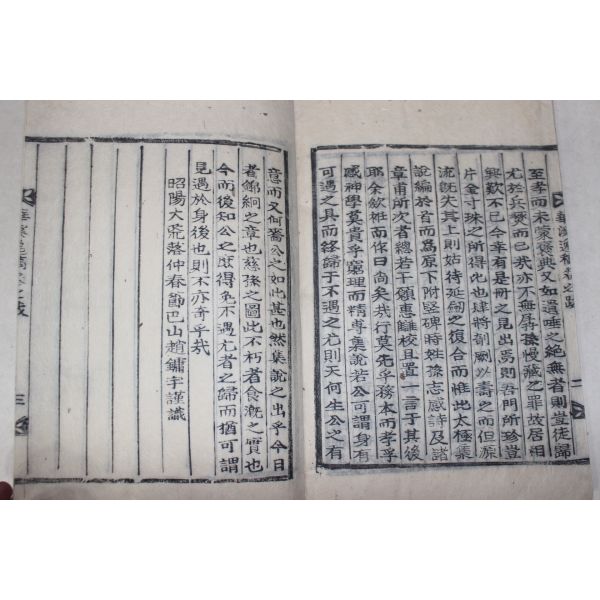 至孝而未蒙褒典又如遺唾之絕無者則豈徒歸
尤於兵燹而已哉亦不無孱孫慢藏之罪故居相
興歎不已今幸有是冊之見出焉則吾門所珍豈
片金寸珠之所得比也肆將剞劂以壽之而但旅
流旣失其上則姑待延劒之復合而惟此太極集
說編於首而爲原下附竪碑時姓孫志感詩及諸
章甫所次者總若干願惠讎校且置一言于其後
耶余欽袵而作曰尚矣哉行莫先乎務本而孝孚
感神學莫貴乎窮理而精尊集說若公可謂身有
可遇之具而終歸于不遇之尤則天何生公之有
意而又何嗇公之如此甚也然集說之出乎今日
者錦絅之章也慈孫之圖此不朽者食漑之實也
今而後知公之庶得免不遇尤者之歸而猶可謂
見遇於身後也則不亦奇乎哉
昭陽大荒落仲春節巴山趙鏞宇謹識
二
三